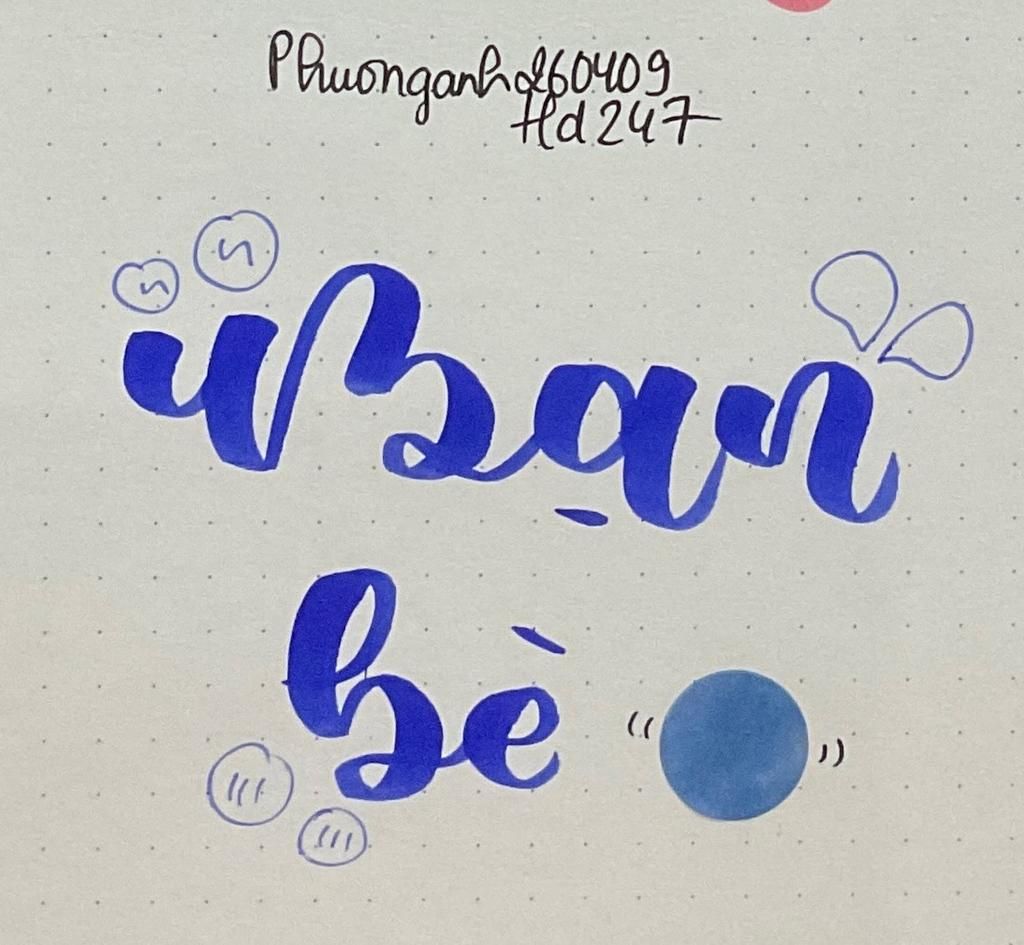 Phuonganh260409
Hd247
Bạn
bè